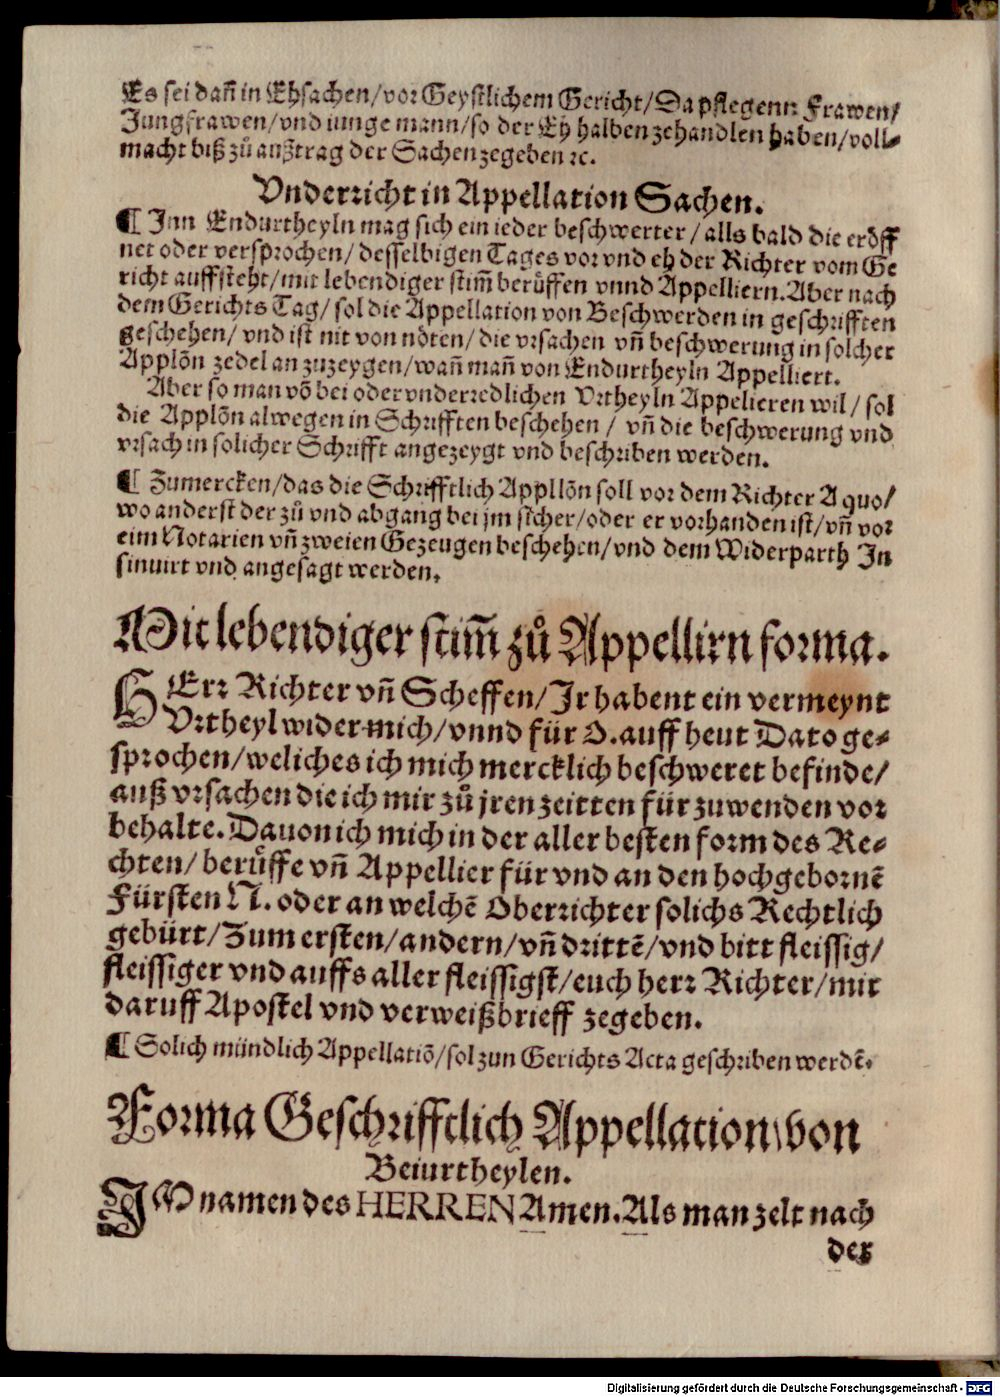 Es sei dañ in Ehsachen/vor Geystlichem Gericht/Da pflegenn Frawen/
Jungfrawen/vnd iunge mann/so der Ey halben zehandlen haben/voll⸗
macht biß zů außtrag der Sachen zegeben ꝛc.
Vnderricht in Appellation Sachen.
¶ Inn Endurtheyln mag sich ein ieder beschwerter/alls bald die eröff
net oder versprochen/desselbigen Tages vor vnd eh der Richter vom Ge
richt auffsteht/mit lebendiger stim̃ berůffen vnnd Appelliern. Aber nach
dem Gerichts Tag/sol die Appellation von Beschwerden in geschrifften
geschehen/vnd ist nit von nöten/die vrsachen vñ beschwerung in solcher
Applõn zedel an zuzeygen/wañ mañ von Endurtheyln Appelliert.
Aber so man võ bei oder vnderredlichen Vrtheyln Appelieren wil/sol
die Applõn alwegen in Schrifften beschehen/vñ die beschwerung vnd
vrsach in solicher Schrifft angezeygt vnd beschriben werden.
¶ Zumercken/das die Schrifftlich Appllõn soll vor dem Richter A quo/
wo anderst der zů vnd abgang bei jm sicher/oder er vorhanden ist/vñ vor
eim Notarien vñ zweien Gezeugen beschehen/vnd dem Widerparth In
sinuirt vnd angesagt werden.
Mit lebendiger stim̃ zů Appellirn forma.
HErr Richter vñ Scheffen/Ir habent ein vermeynt
Vrtheyl wider mich/vnnd für O. auff heut Dato ge⸗
sprochen/weliches ich mich mercklich beschweret befinde/
auß vrsachen die ich mir zů jren zeitten für zuwenden vor
behalte. Dauon ich mich in der aller besten form des Re⸗
chten/berůffe vñ Appellier für vnd an den hochgebornẽ
Fürsten N. oder an welchẽ Oberrichter solichs Rechtlich
gebürt/Zum ersten/andern/vñ drittẽ/vnd bitt fleissig/
fleissiger vnd auffs aller fleissigst/euch herr Richter/mir
daruff Apostel vnd verweißbrieff zegeben.
¶ Solich mündlich Appellatiõ/sol zun Gerichts Acta geschriben werdẽ.
Forma Geschrifftlich Appellation von
Beiurtheylen.
IM namen des HERREN Amen. Als man zelt nach
der
Digitalisierung gefördert durch die Deutsche Forschungsgemeinschaft - DFG